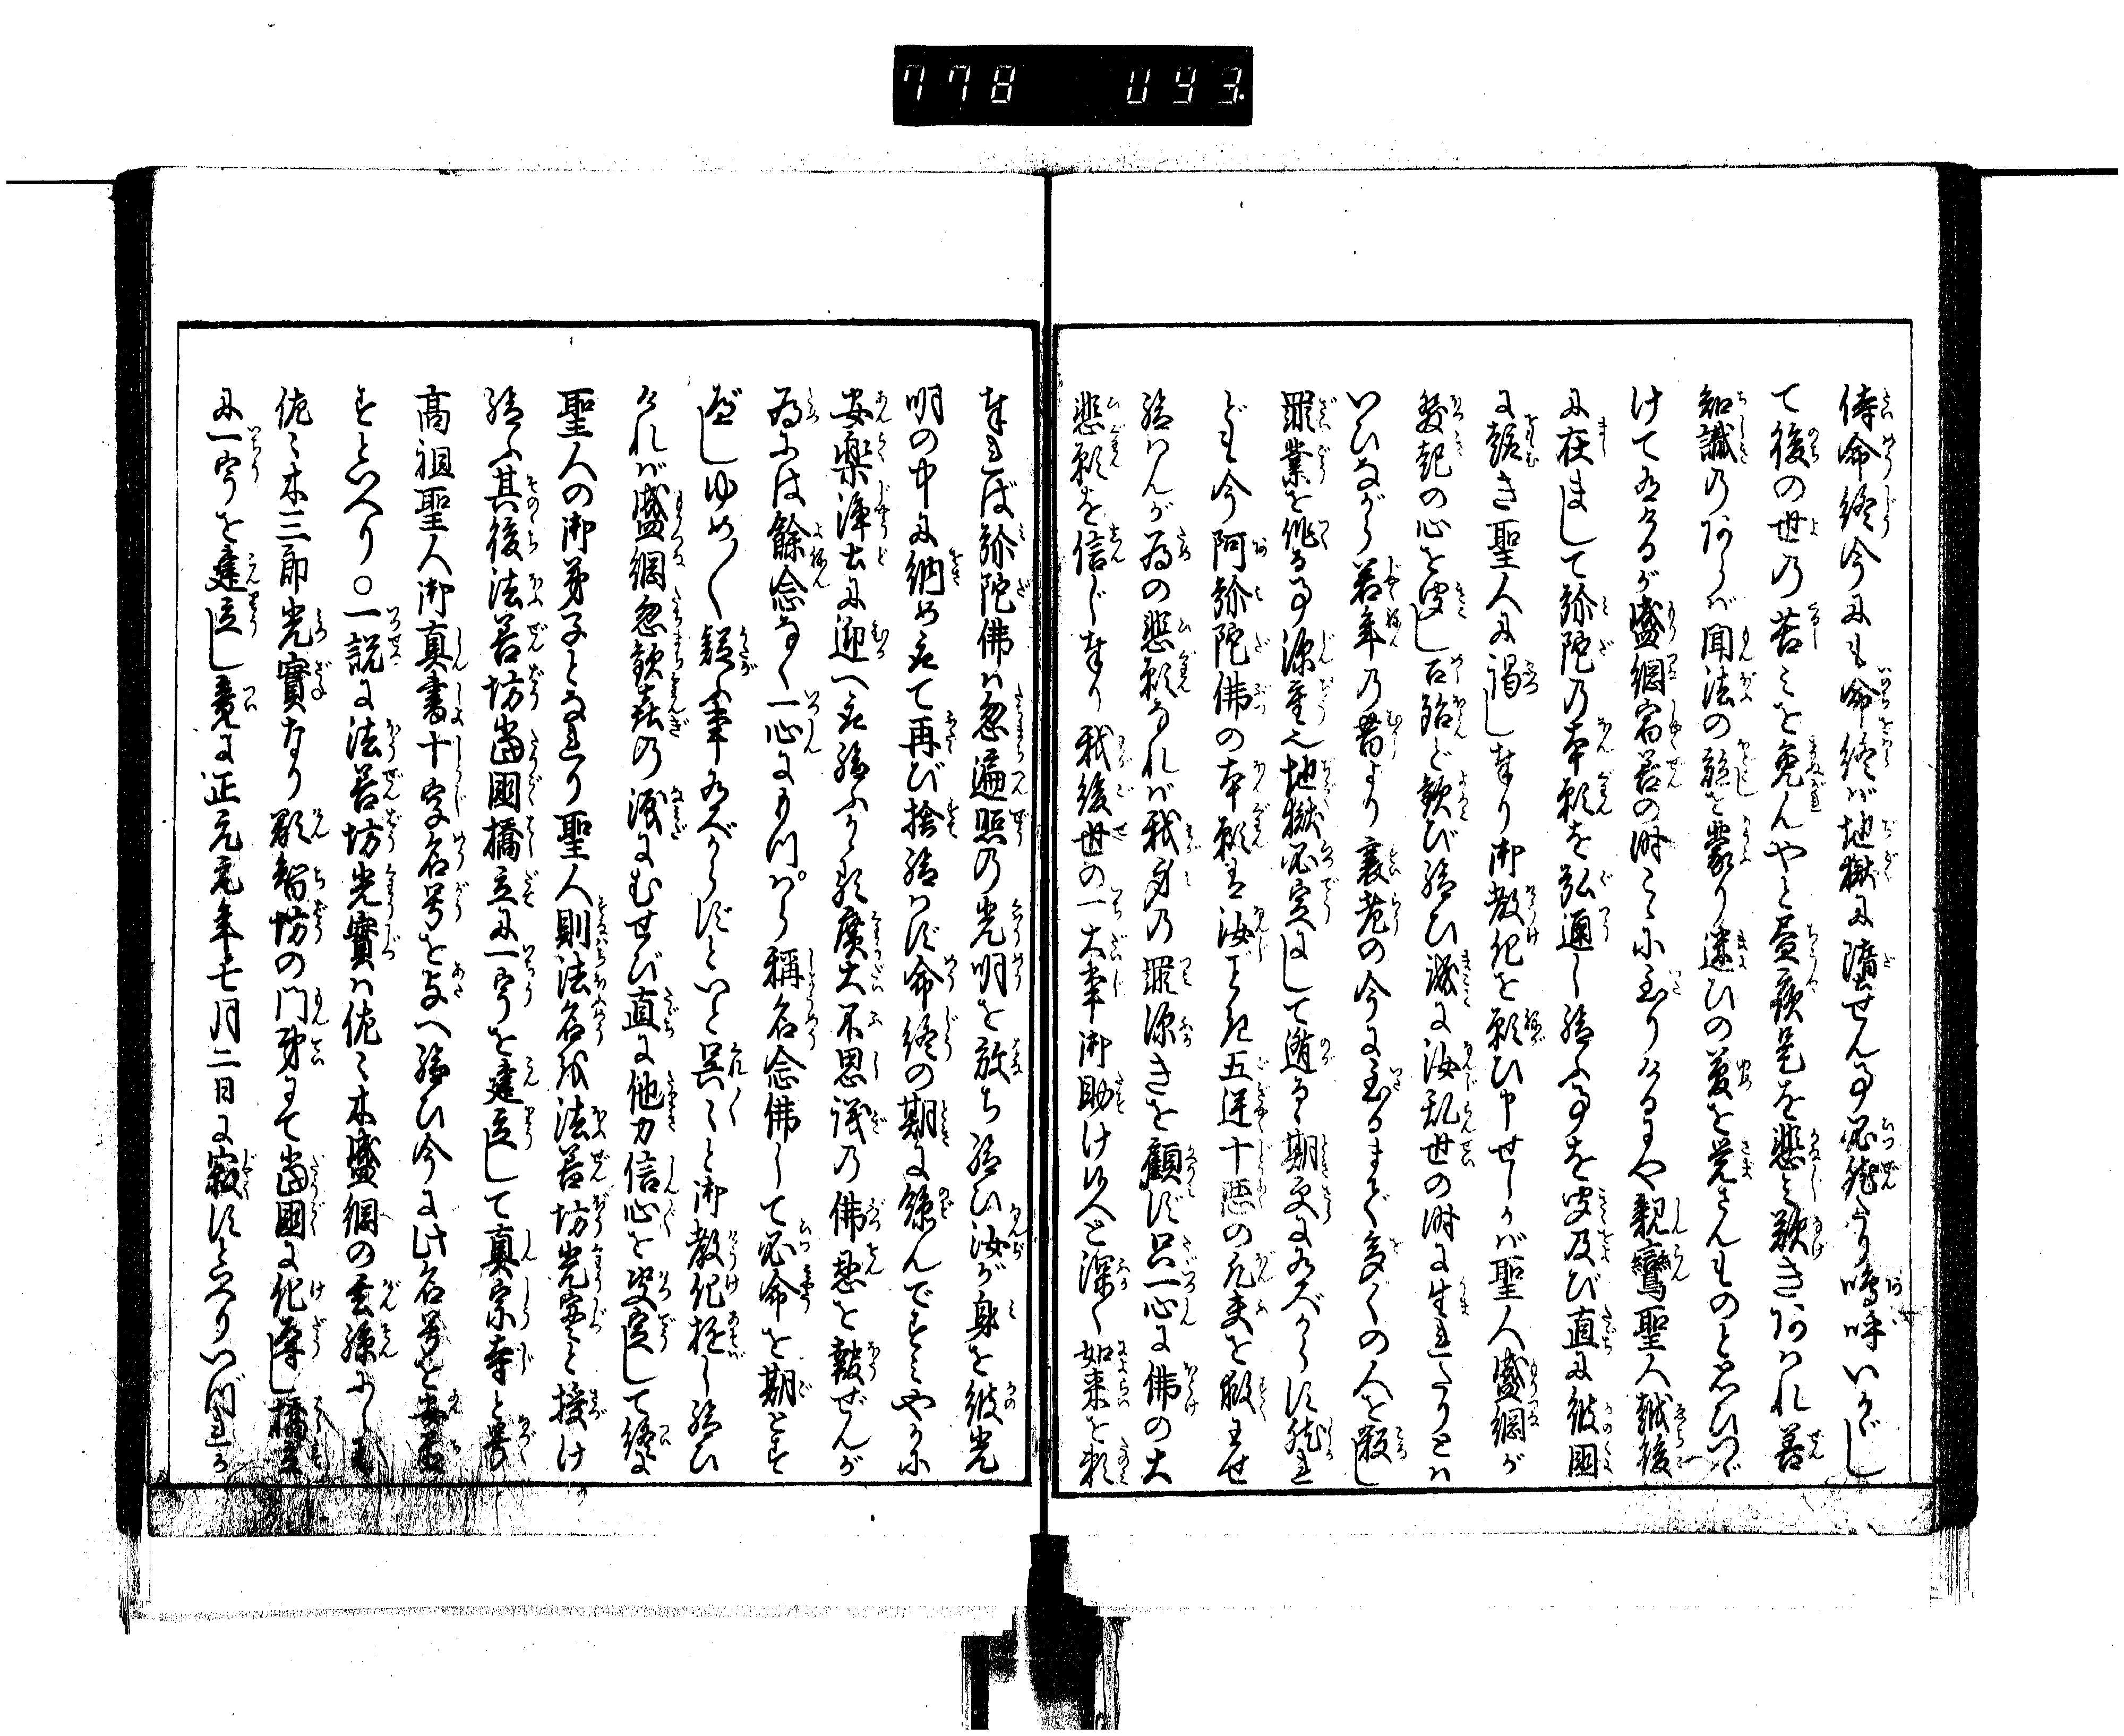 778 043
待命終今にも命終ば地獄に墮せん事必然なり嗚呼いかゞし
て後の世の苦しみを免んやと昼夜是を悲み歎きあはれ善
知識のあらば聞法の縁を蒙り迷ひの夢を覚さんものと思ひつゞ
けて居けるが盛綱宿善の時こゝに至りけるにや親鸞聖人越後
に在まして弥陀の本願を弘通し給ふ事を聞及び直に彼國
に趣き聖人に謁し奉り御教化を願ひ申せしかば聖人盛綱が
發起の心を聞し召殆ど歓び給ひ誠に汝乱世の時に生れたりとは
いひながら若年の昔より衰老の今に至るまで多くの人を殺し
罪業を作る事深重也地獄必定にして遁るゝ期更に有べからず然れ
ども今阿弥陀佛の本願は汝ごとき五逆十悪の凡夫を救はせ
給はんが為の悲願なれば我身の罪深きを顧ず只一心に佛の大
悲願を信じ奉り我後世の一大事御助け候へと深く如来を頼
奉れば弥陀佛は忽遍照の光明を放ち給ひ汝が身を彼光
明の中に納め玉て再び捨給はず命終の期に臨んですみやかに
安楽浄土に迎へ玉給ふかゝる廣大不思議の佛恩を報ぜんが
為には餘念なく一心にもつぱら稱名念佛して必命を期とす
べしゆめ〱疑ふ事有べからずといと異〻と御教化遊し給ひ
ければ盛綱忽歓喜の涙にむせび直に他力信心を決定して終に
聖人の御弟子となれり聖人則法名を法善坊光実と授け
給ふ其後法善坊當國橋立に一宇を建立して真宗寺と号
高祖聖人御真書十字名号を与へ給ひ今に此名号を安置
すといへり○一説に法善坊光實は佐々木盛綱の玄孫にして
佐々木三郎光實なり顕智坊の門弟にて當國に化導し橋立
に一宇を建立し竟に正元元年七月二日に寂すといへりいづれか